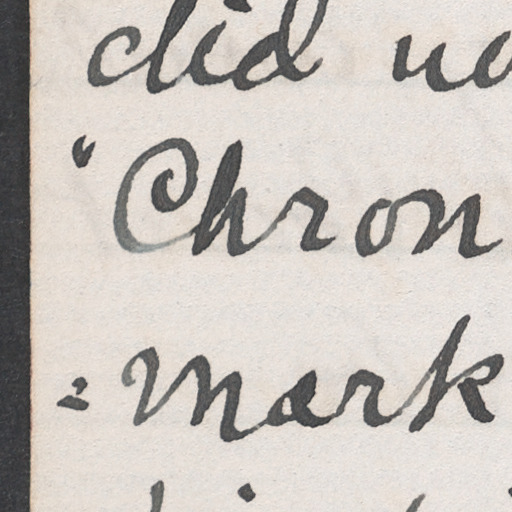 did no
“Chron
=mark